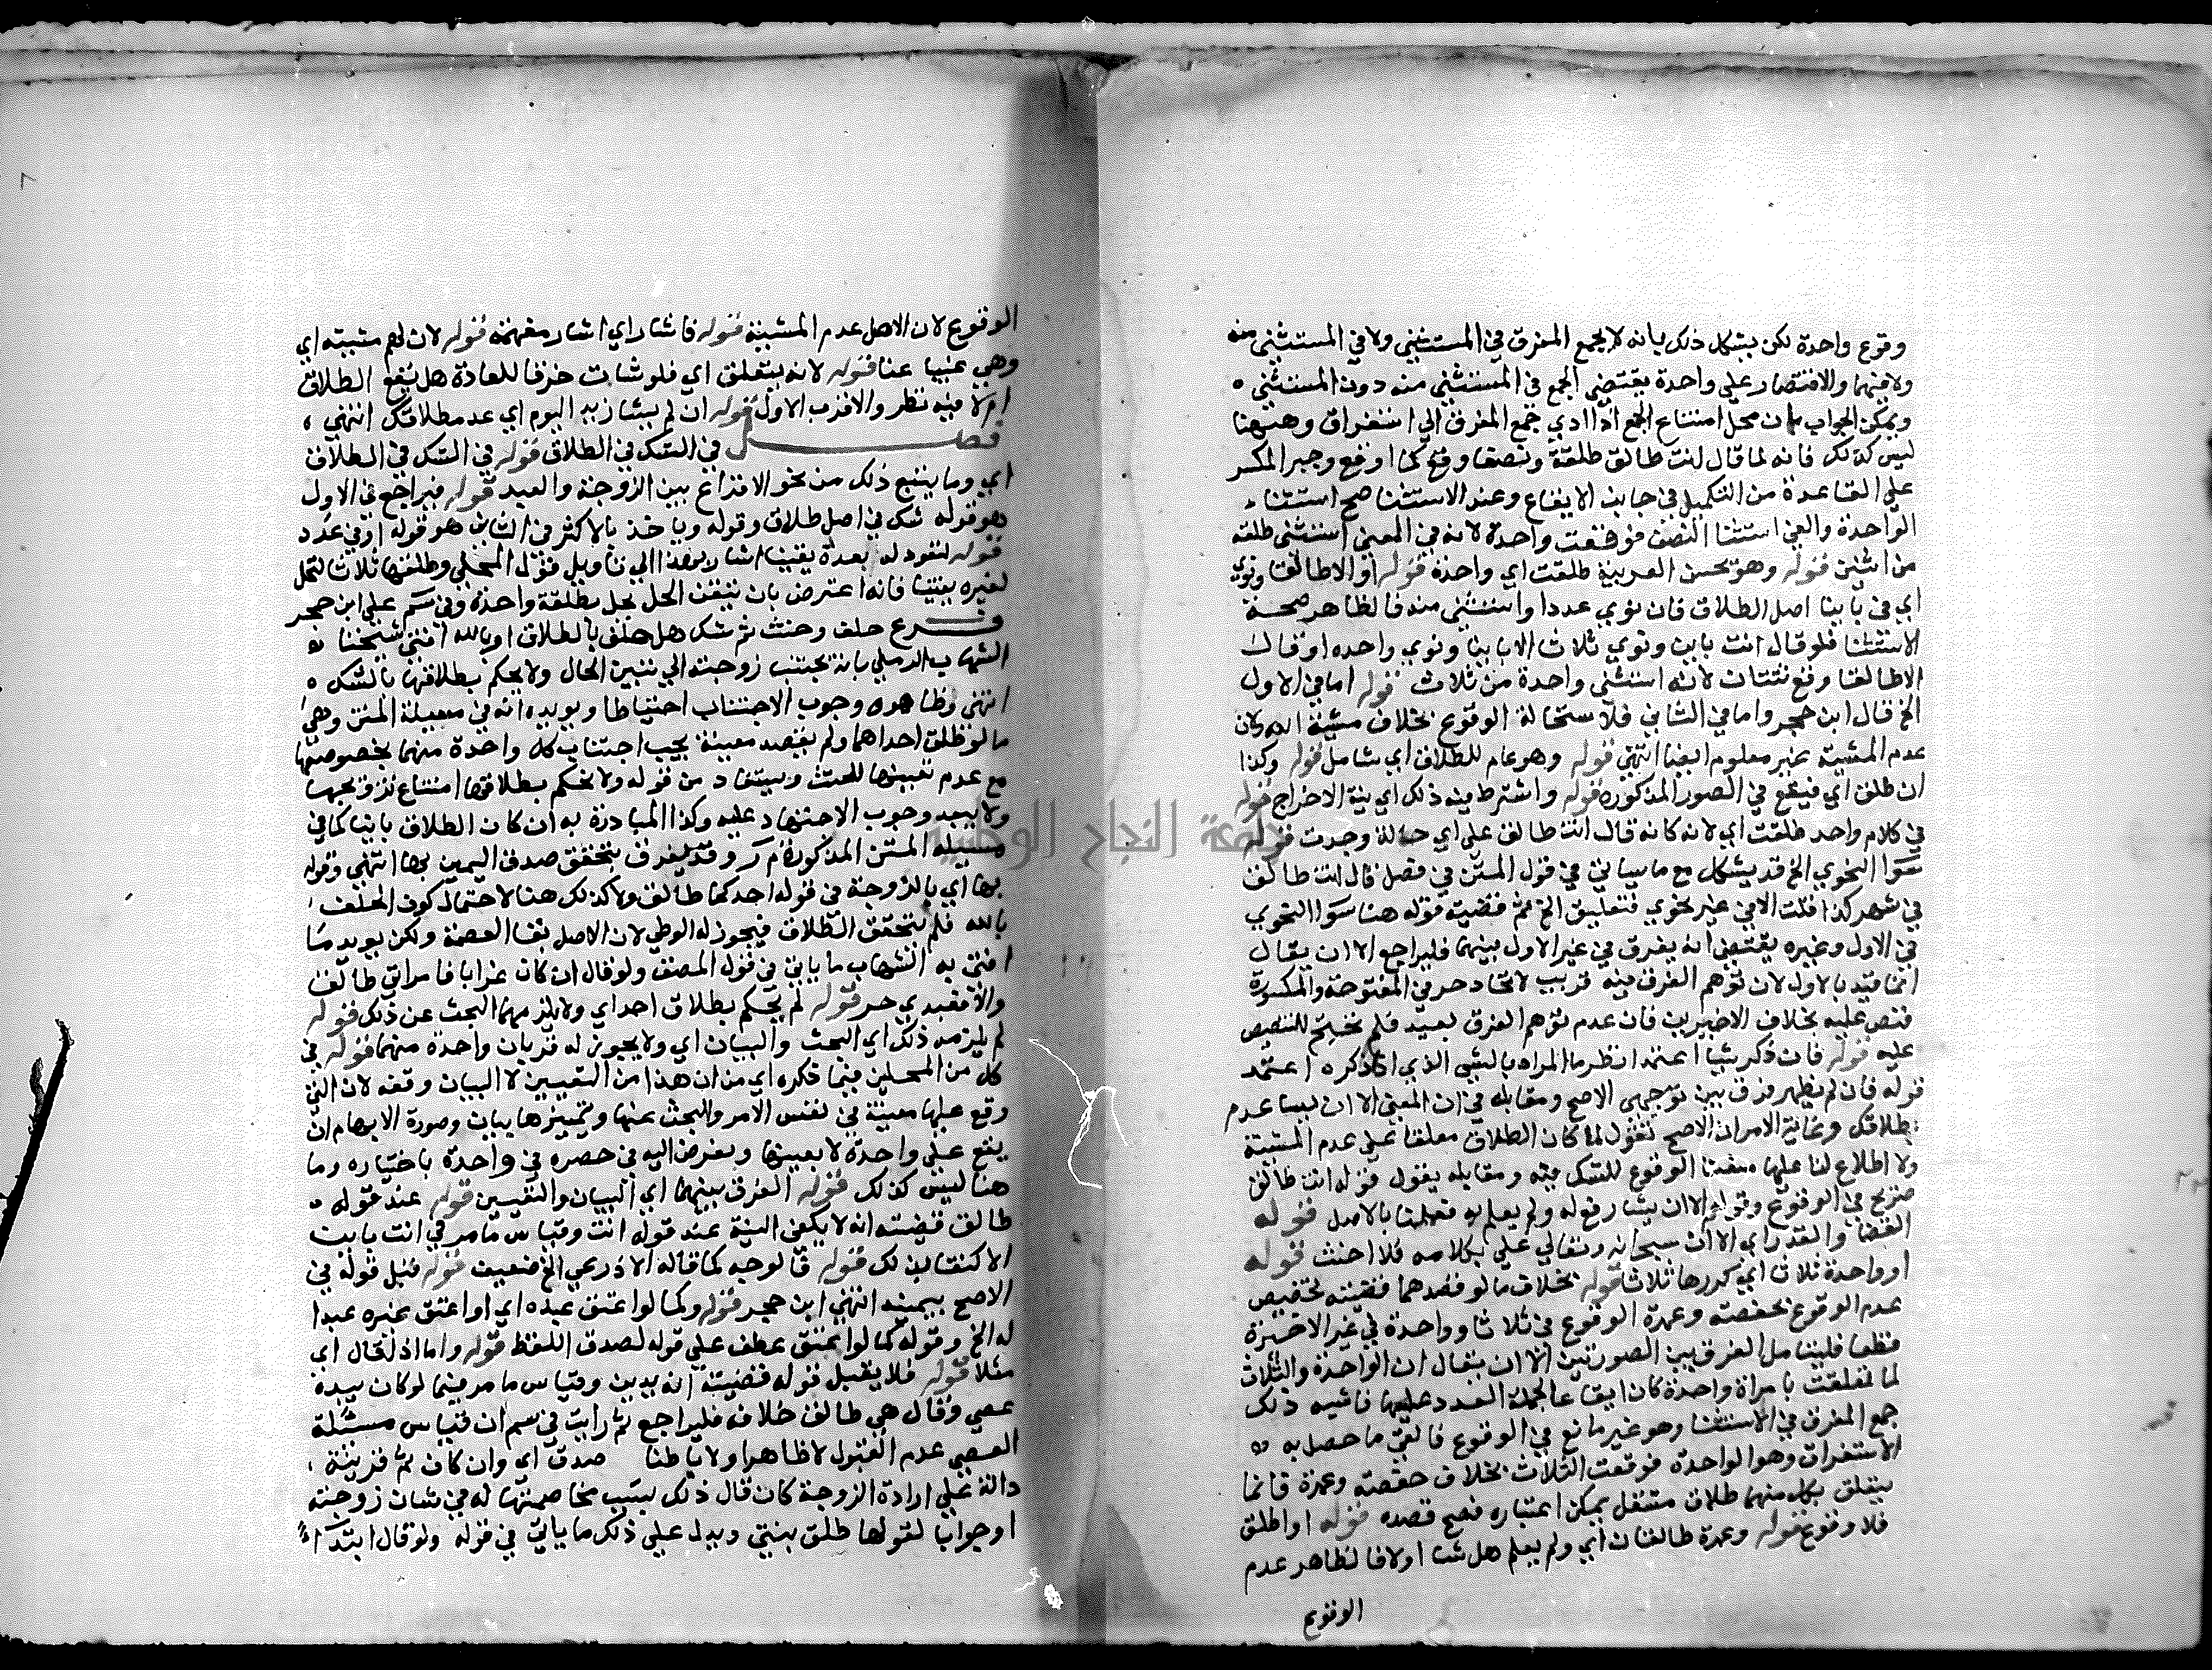 وقوع واحدة لكن يشكل ذلك بانه لا يجمع المفرق في المستثني ولا في المستثني منه
ولا فيهما والاقتصار علي واحدة يقتضي الجمع في المستثني منه دون المستثني
ويمكن الجواب بان محل امتناع الجمع اذا ادي جمع المفرق الي استغراق وههنا
ليس كذلك فانه لما قال انت طالق طلقة ونصفا وقع كما اوقع وجبر المكسر
علي القاعدة من التكميل في جانب الايقاع وعند الاستثنا صح استثناء
الواحدة والغي استثنا النصف فوقعت واحدة لانه في المعني استثني طلقة
من اثنين قوله وهو يحسن العربية طلقت اي واحدة قوله او الا طالقا ونوي
اي في بابنا اصل الطلاق فان نوي عددا واستثني منه فالظاهر صحة
الاستثنا فلو قال انت باين ونوي ثلاث الا باينا ونوي واحده او قال
الا طالقا وقع ثنتان لانه استثني واحدة من ثلاث قوله اما في الاول
الخ قال ابن حجر واما في الثاني فلاستحالة الوقوع بخلاف مشية الله ولان
عدم المشية غير معلوم ايضا انتهي قوله وهو عام للطلاق اي شامل قوله وكذا
ان طلق اي فيقع في الصور المذكورة قوله واشترط فيه ذلك اي نية الاخراج قوله
في كلام واحد طلقت اي لانه كانه قال انت طالق علي اي حالة وجدت قوله
سوا النحوي الخ قد يشكل مع ما سياتي في قول المتن في فصل قال انت طالق
في شهر كذا قلت الا في غير نحوي فتعليق الخ ثم قضية قوله هنا سوا النحوي
في الاول وغيره يقتضي انه يفرق في غير الاول بينهما فليراجع الا ان يقال
انما قيد بالاول لان توهم الفرق فيه قريب لاتحاد حرفي المفتوحة والمكسورة
فنص عليه بخلاف الاخيرين فان عدم توهم الفرق بعيد فلم يحتج للتنصيص
عليه قوله فان ذكر شيا اعتمد انظر ما المراد بالشي الذي اذا ذكره اعتمد
قوله فان لم يظهر فرق بين توجهي الاصح ومقابله في ان المعني الا ان يشا عدم
طلاقك وغاية الامر ان الاصح نقول لما كان الطلاق معلقا علي عدم المشية
ولا اطلاع لنا عليها منعنا الوقوع للشك فيه ومقابله يقول قوله انت طالق
صريح في الوقوع وقوله الا ان يشا رفع له ولم يعلم به فعملنا بالاصل قوله
القضا والقدر اي الا ان سبحانه وتعالي علي بكلامه فلا احنث قوله
او واحدة ثلاث اي كررها ثلاثا قوله بخلاف ما لو قصدهما فقضيته تخصيص
عدم الوقوع بحفصة وعمرة الوقوع في ثلاثا وواحدة في غير الاخيرة
قطعا فليتامل الفرق بين الصورتين الا ان يقال ان الواحدة والثلاث
لما تعلقت بامراة واحدة كان ايقاعا لجملة العدد عليها فاشبه ذلك
جمع المفرق في الاستثنا وهو غير مانع في الوقوع فالغي ما حصل به
الاستغراق وهو الواحدة فوقعت الثلاث بخلاف حفصة وعمرة فانما
يتعلق بكل منهما طلاق مستقل يمكن اعتباره فصح قصده قوله او اطلق
فلا وقوع قوله وعمرة طالقان اي ولم يعلم هل شا او لا فالظاهر عدم
الوقوع
الوقوع لان الاصل عدم المشية قوله فاشار اي اشار مفهمة قوله لان لهم مشيته اي
وهي غيبا عنا قوله لانه يتعلق اي فلو شات خرقا للعادة هل يقع الطلاق
ام لا فيه نظر والاقرب الاول قوله ان لم يشا زيد اليوم اي عدم طلاقك انتهي
فصل في الشك في الطلاق قوله في الشك في الطلاق
اي وما يتبع ذلك من نحو الاقراع بين الزوجة والعبد قوله فيراجع في الاول
هو قوله شك في اصل طلاق وقوله وياخذ بالاكثر في الثاني هو قوله او في عدد
قوله لتعود له بعده يقينا اشار بهذا الي تاويل قول المحلي وطلقها ثلاثا لتحل
لغيره يقينا فانه اعترض بان تيقن الحل يحل بطلقة واحدة وفي سم علي ابن حجر
فرع حلف وحنث ثم شك هل حلف بالطلاق او بالله افتي شيخنا
الشهاب الرملي بانه يجتنب زوجته الي تبين الحال ولا يحكم بطلاقها بالشك
انتهي وظاهره وجوب الاجتناب احتياطا ويويده انه في مسيلة المتن وهي
ما لو طلق احداهما ولم يقصد معينة يجب اجتناب كل واحدة منهما بخصوصها
مع عدم تعيينها للحنث ويستفاد من قوله ولا يحكم بطلاقها امتناع تزويجها
ولا يبعد وجوب الاجتهاد عليه وكذا المبادرة به ان كان الطلاق باينا كما في
مسيلة المتن المذكورة م ر وقد يفرق بتحقق صدق اليمين بها انتهي وقوله
بها اي بالزوجة في قوله احدكما طالق ولا كذلك هنا لاحتمال كون الحلف
بالله فلم يتحقق الطلاق فيجوز له الوطي لان الاصل بقا العصمة ولكن يويد ما
افتي به الشهاب ما ياتي في قول المصنف ولو قال ان كان غرابا فامراتي طالق
والا فعبدي حر قوله لم يحكم بطلاق احد اي ولا يلزمهما البحث عن ذلك قوله
لم يلزمه ذلك اي البحث والبيان اي ولا يجوز له قربان واحدة منهما قوله في
كل من المحلين فيما ذكره اي من ان هذا من التعيين لا البيان وقفه لان التي
وقع عليها معينة في نفس الامر والبحث عنها وتمييزها بيان وصورة الابهام ان
يقع علي واحدة لا بعينها ويفرض اليه في حصره في واحدة باختياره وما
هنا ليس كذلك قوله الفرق بينهما اي البيان والتعيين قوله عند قوله
طالق قضيته انه لا يكفي النية عند قوله انت وقياس ما مر في انت باين
الاكتفا بذلك قوله قالوجه كما قاله الاذرعي الخ ضعيف قوله قبل قوله في
الاصح بيمينه انتهي ابن حجر قوله وكما لو اعتق عبده اي او اعتق غيره عبدا
له الخ وقوله كما لو اعتق عطف علي قوله لصدق اللفظ قوله واما اذا قال اي
مثلا قوله فلا يقبل قوله قضيته انه يدين وقياس ما مر فيما لو كان بيده
عصي وقال هي طالق خلافه فليراجع ثم رايت في سم ان قياس مسئلة
العصي عدم القبول لا ظاهرا ولا باطنا صدق اي وان كان ثم قرينة
دالة علي ارادة الزوجة كان قال ذلك بسبب مخاصمتها له في شان زوجته
او جوابا لقولها طلق بنتي ويدل علي ذلك ما ياتي في قوله ولو قال ابتداء